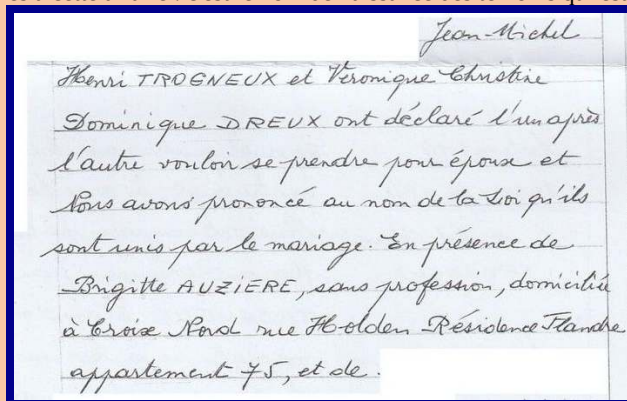 Jean-Michel
Henri TROGNEUX et Véronique Christine
Dominique DREUX ont déclaré l'un après
l'autre vouloir se prendre pour époux et
Nous avons prononcé au nom de la Loi qu'ils
sont unis par le mariage. En présence de
Brigitte AUZIERE, sans profession, domiciliée
à Croix Nord rue Holden Résidence Flandre
appartement 75, et de.